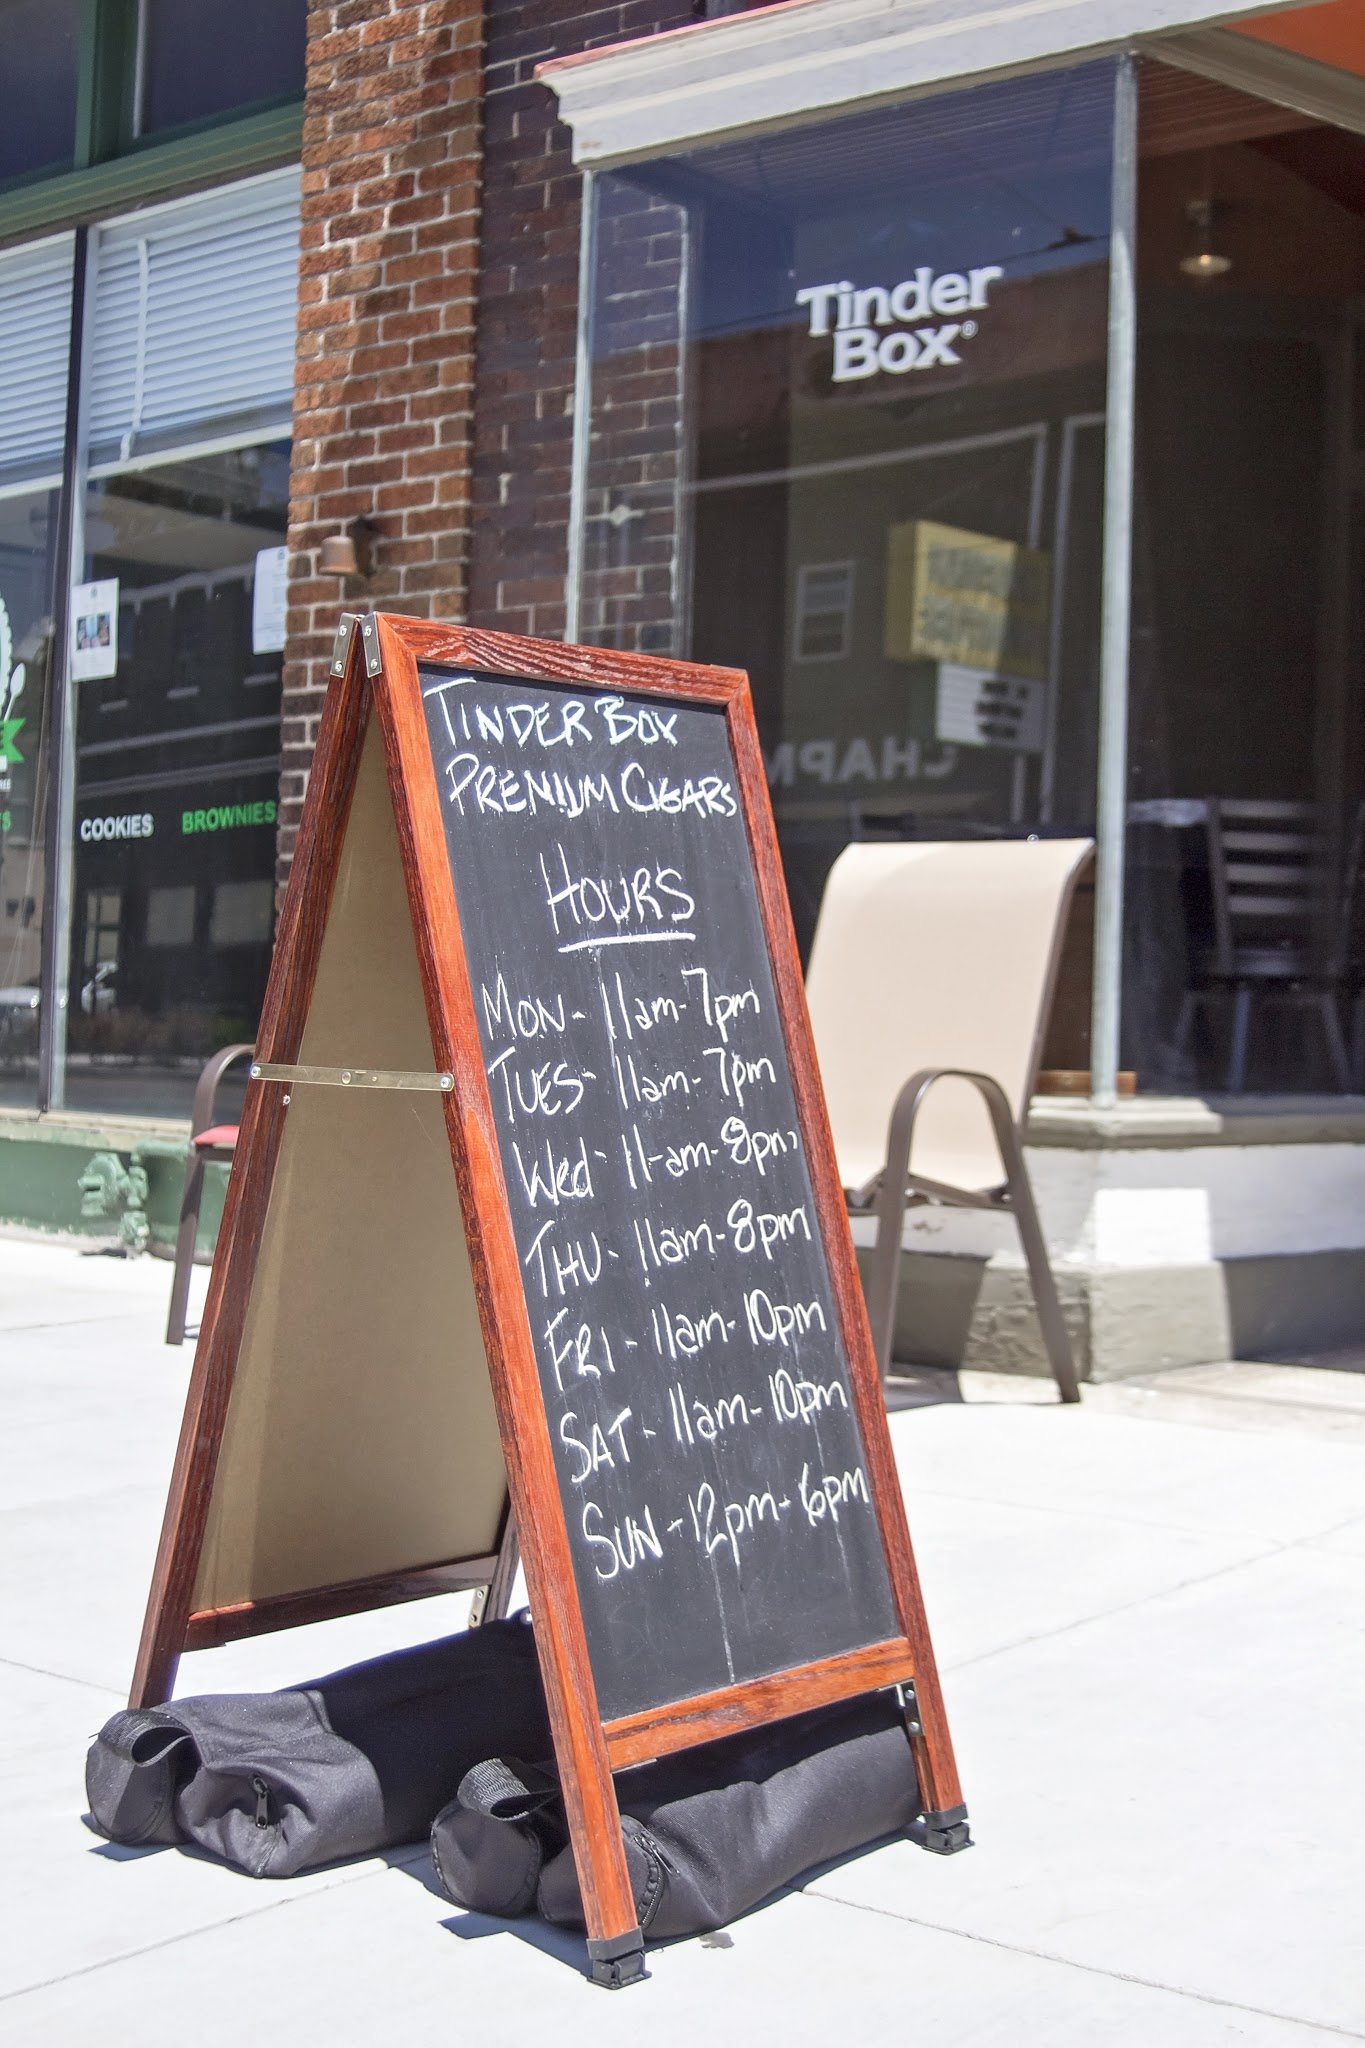 Tinder
Box®
TINDER BOX
PREMIUM CIGARS
HOURS
MON - 11am - 7pm
TUES - 11am - 7pm
Wed - 11-am - 8pm
THU - 11am - 8pm
FRI - 11am - 10pm
SAT - 11am - 10pm
SUN - 12pm - 6pm
COOKIES BROWNIES